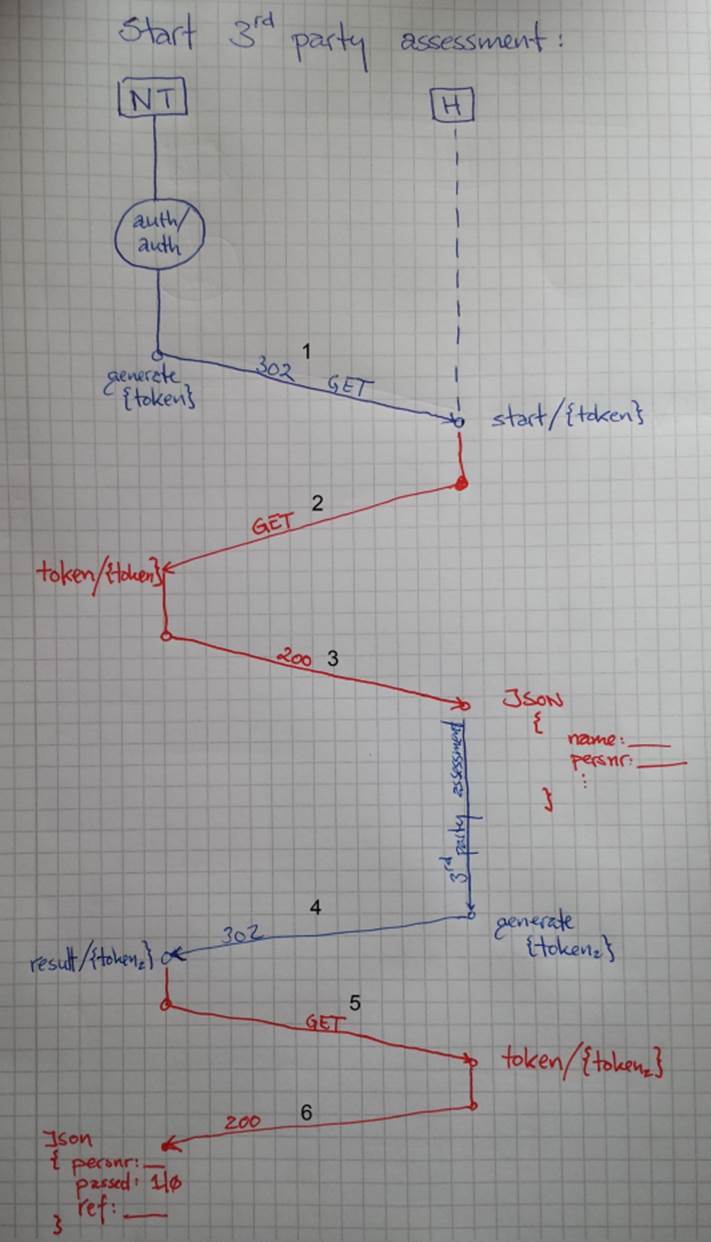 Start 3rd party assessment:
NT
H
auth/
auth
1
302 GET
generate
{token}
start/{token}
2
GET
token/{token}
200 3
JSON
{
name: ___
persnr: ___
:
}
3rd party assessment
4
302
generate
{token2}
result/{token2}
5
GET
token/{token2}
200 6
Json
{ persnr: __
passed: 1|0
ref: ___
}